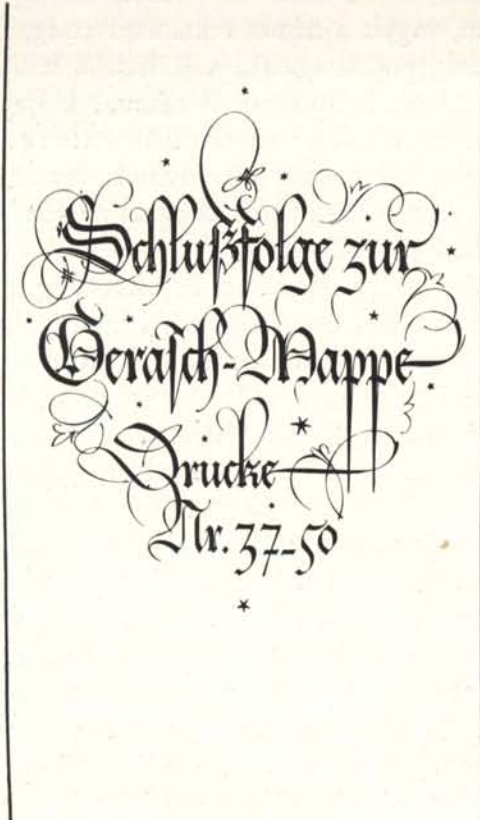 Schlußfolge zur
Gerasch-Mappe
Drucke
Nr. 37-50